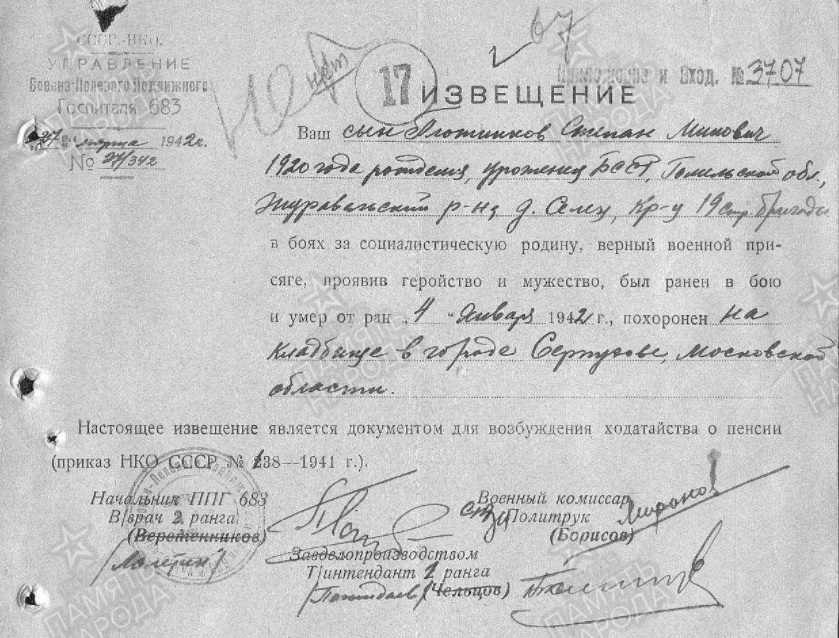 67
СССР.-НКО.
УПРАВЛЕНИЕ
Военно-Полевого Подвижного
Госпиталя 683
"27" марта 1942г.
№ 27/342
нет
17
Вход. № 3707
ИЗВЕЩЕНИЕ
Ваш сын Плотников Степан
1920 года рождения, уроженец БССР, Гомельской обл.,
р-на д. Селец, кр-ц 19 стр. бригады
в боях за социалистическую родину, верный военной при-
сяге, проявив геройство и мужество, был ранен в бою
и умер от ран „4 " января 1942 г., похоронен на
кладбище в городе Серпухове, Московской
области.
Настоящее извещение является документом для возбуждения ходатайства о пенсии
(приказ НКО СССР № 138—1941 г.).
Начальник ППГ 683
В/врач 2 ранга
(Веретенников)
Военный комиссар
ст. Политрук
(Борисов) Миронов
Завделопроизводством
Т/интендант 2 ранга
(Чельцов)
ПАМЯТЬ НАРОДА